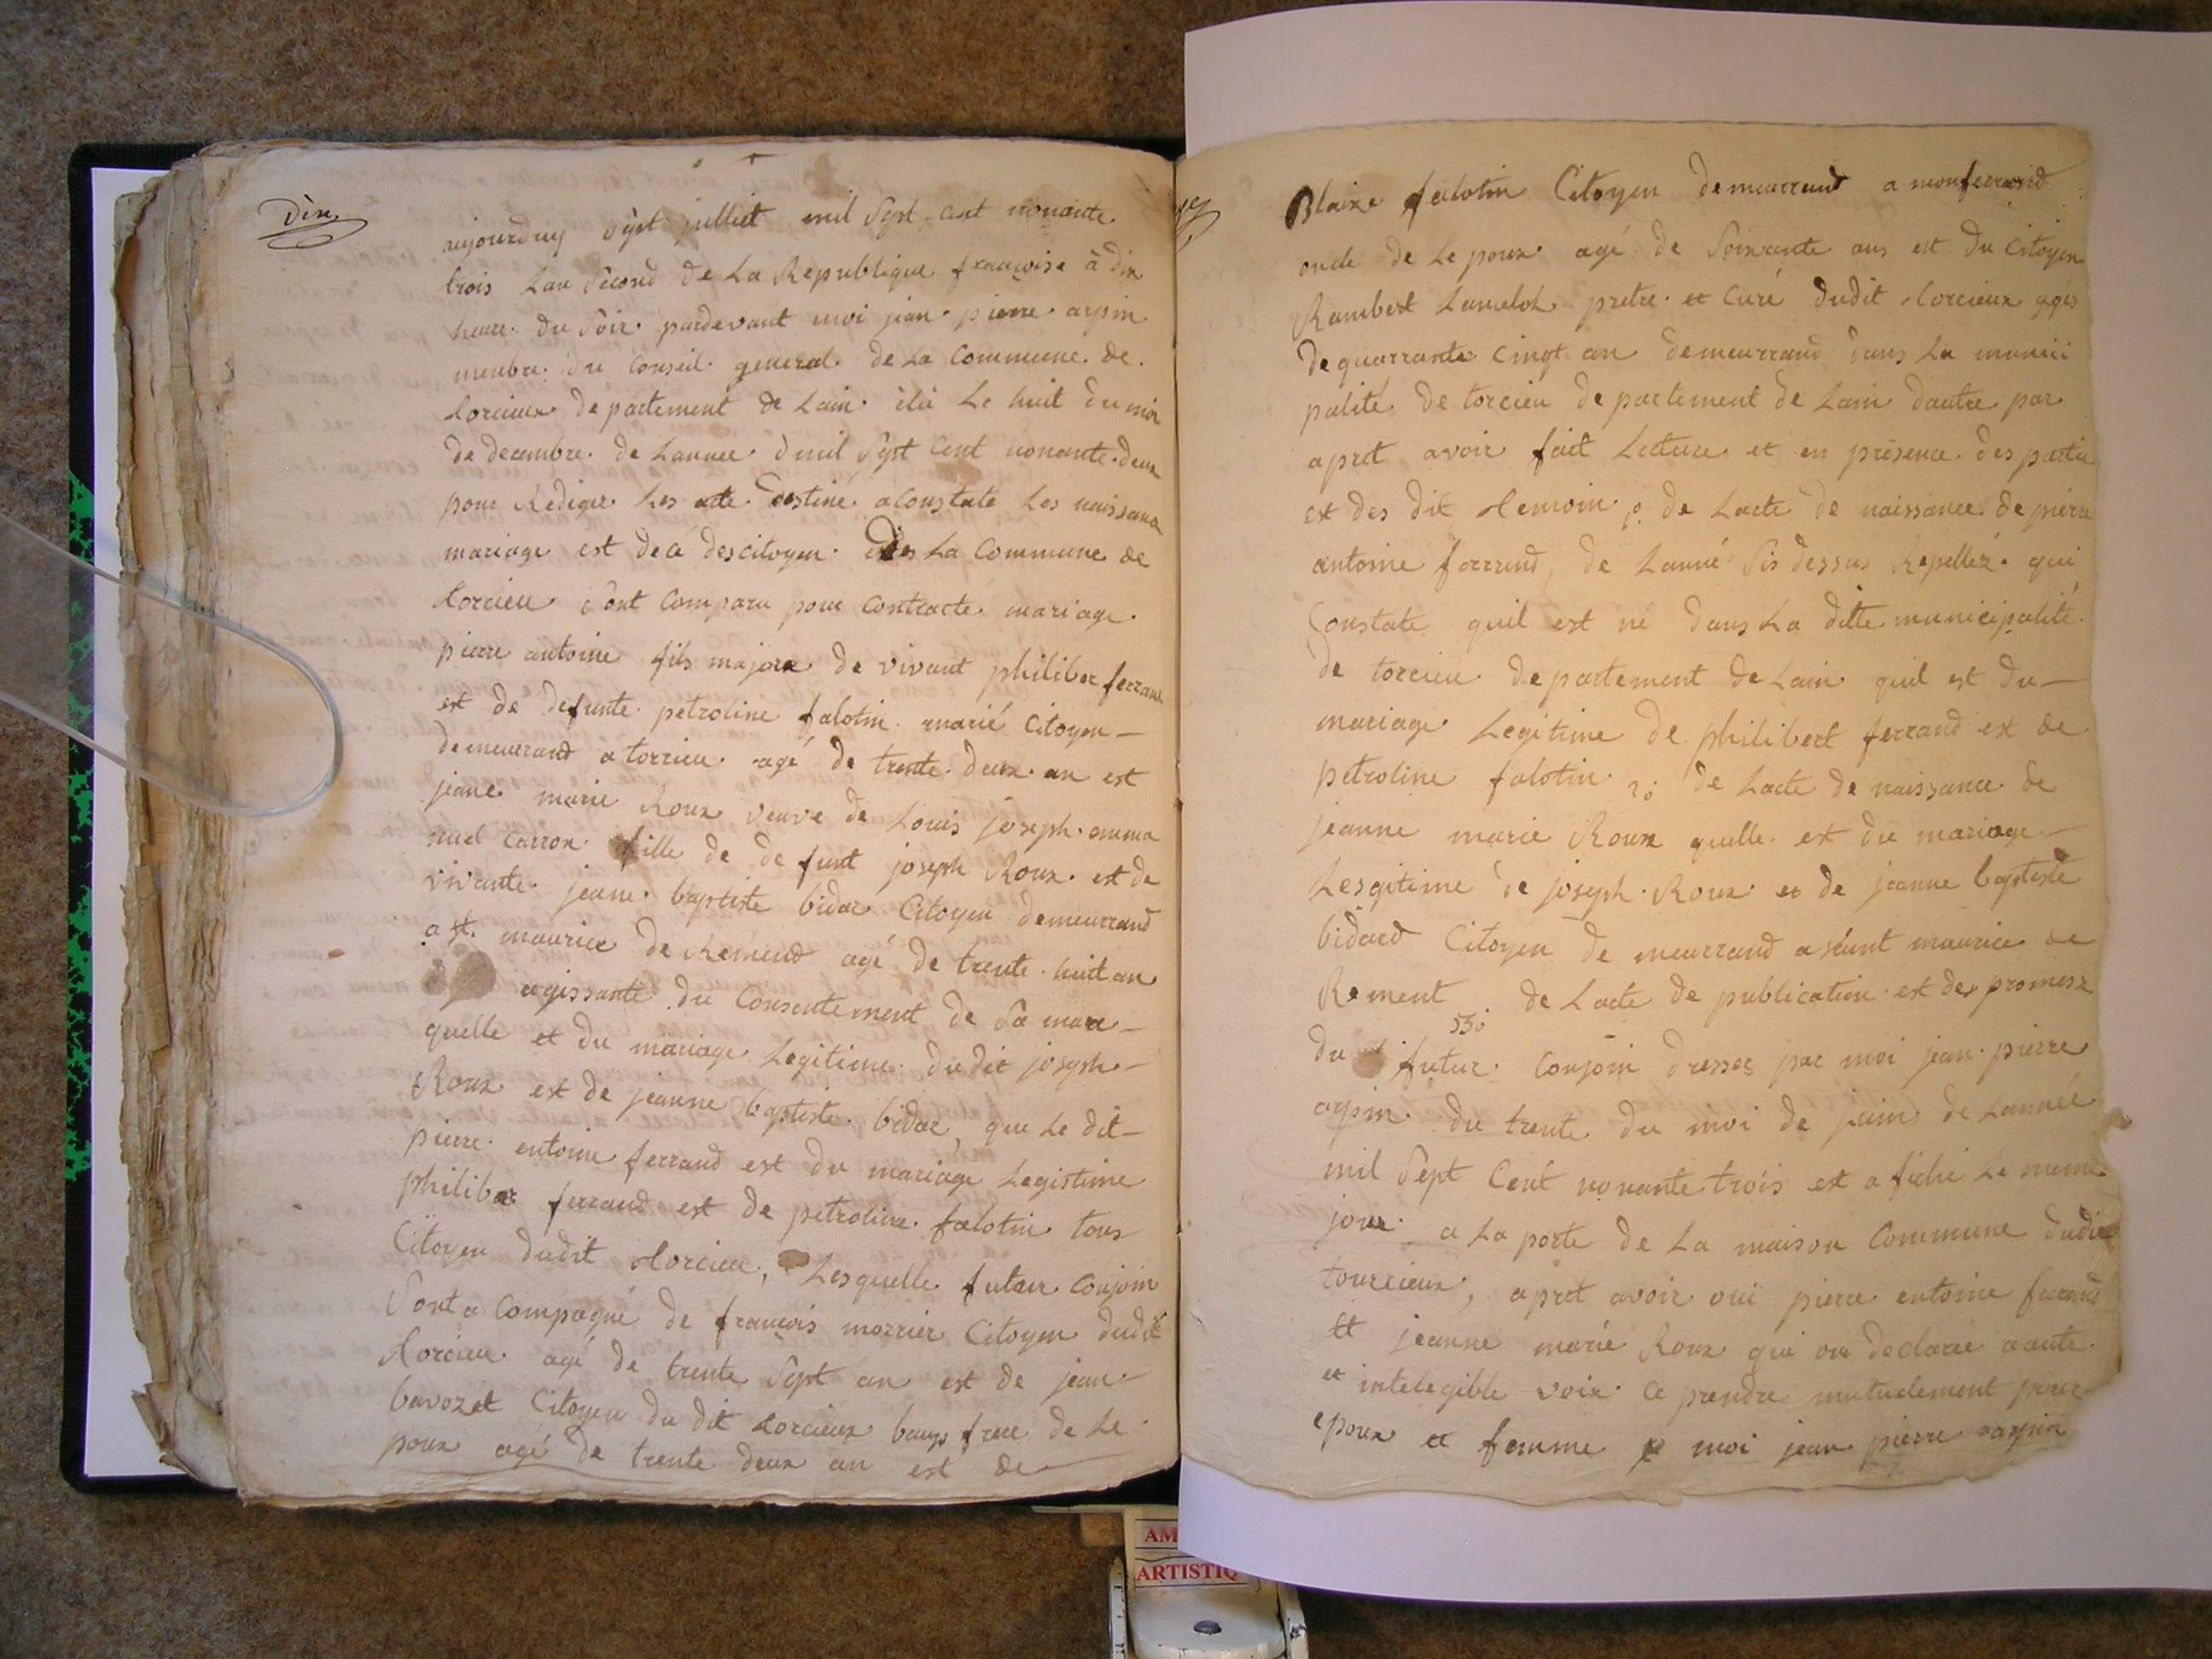 Dix
aujourduy sept julliet mil Sept cent nonante
trois Lan Second de La Republique francoise à dix
heure du Soir pardevant moi jean pierre arpin
menbre du Conseil general de La Commune de
torcieux departement de Lain élu Le huit du moi
de decembre de Lannee d mil Sept Cent nonante deux
pour Rediger Les acte destiné a Constate Les naissance
mariage est decé des citoyen La Commune de
torcieu Sont Comparu pour Contracté mariage
pierre antoine fils majore de vivant philiber ferrand
est de defunte petroline falotin marié Citoyen
demeurand a torcieu agé de trente deux an est
jeane marie Roux veuve de Louis joseph emma
nuel Carron fille de de funt joseph Roux est de
vivante jeane baptiste bidar Citoyen demeurrand
a st. maurice de Remend agé de trente huit an
agissante du Consentement de Sa mere
quelle et du mariage Legitieme du dit joseph
Roux est de jeanne baptiste bidar, que Le dit
pierre entoine ferrand est du mariage Legistime
philiber ferrand est de petroline falotin tous
Citoyen dudit torcieu, Lesquelle futeur Conjoin
Sont a Compagné de francois morrier Citoyen dudit
torcieu agé de trente Sept an est de jean
bavozet Citoyen du dit torcieux baux frere de Le
poux agé de trente deux an est de
Blaize falotin Citoyen demeurrand a monferrand
oncle de Le poux agé de Soixante ans est du Citoyen
Rambert Lancelot pretre et Curé dudit torcieux agés
de quarrante Cinqt an demeurrand dans La munici
palité de torcieu departement de Lain dautre par
apret avoir fait Lecture et en présence des partie
est des dit temoin de Lacte de naissance de pierre
antoine ferrend de Lanné Sis dessus Repellez qui
Constate quil est né dans La ditte municipalité
de torcieu departement de Lain quil est du
mariage Legitime de philibert ferrand est de
petroline falotin 2o de Lacte de naissance de
jeanne marie Roux quelle est du mariage
Lesgitime de joseph Roux et de jeanne baptiste
bidard Citoyen de meurrand a séunt maurice de
Rement de Lacte de publication est des promese
du futur Conjoin dresses par moi jean pierre
arpin du trente du moi de juin de Lannée
mil Sept Cent nonante trois est a fiché Le meme
jour a La porte de La maison Commune dudit
tourcieux, apret avoir oui pierre entoine ferrand
et jeanne marie Roux qui on declaré aaute
et intelegible voix Ce prendre mutuelement pour
epoux et femme moi jean pierre arpin
AM
ARTISTIQ